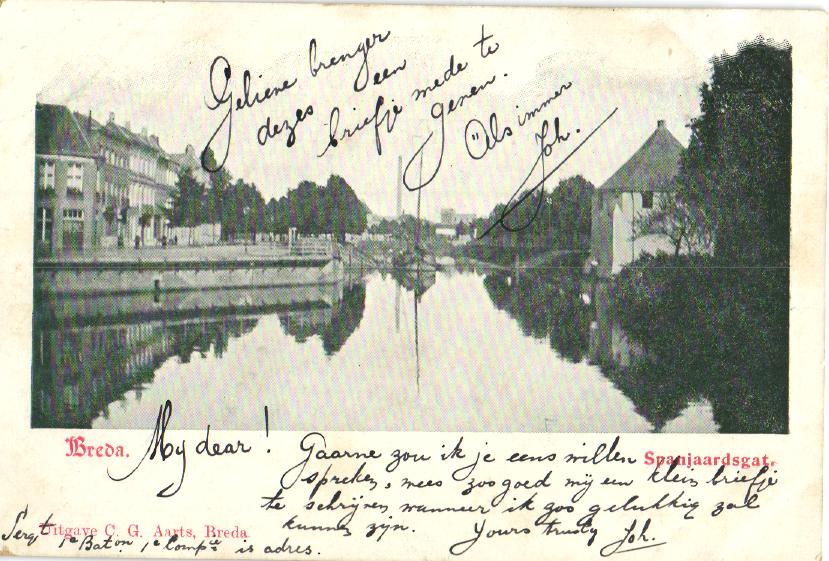 Geliene brenger
dezes een
briefje mede te
geven.
"Als immer
Joh.
Breda.
My dear!
Gaarne zou ik je eens willen
Spanjaardsgat.
spreken, wees zoo goed mij een klein briefje
te schrijven wanneer ik zoo gelukkig zal
kunnen zyn. Yours trusty Joh.
Uitgave C. G. Aarts, Breda
Sergt 1e Baton 1e Compie is adres.